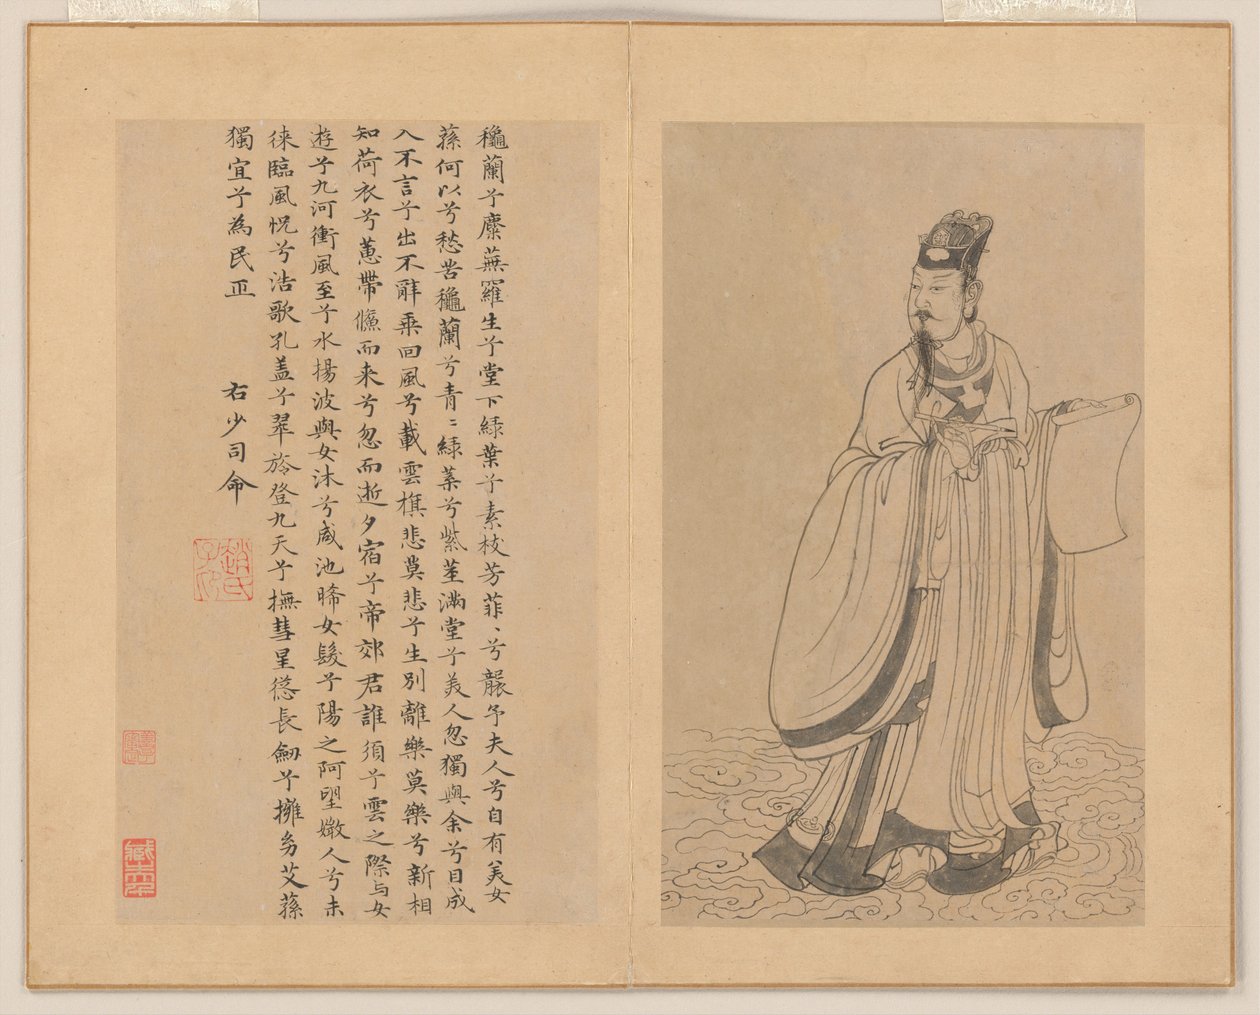 穐蘭兮麋蕪羅生兮堂下緑葉兮素枝芳菲〻兮襲予夫人兮自有美女
蓀何以兮愁苦穐蘭兮青〻緑葉兮紫莖滿堂兮美人忽獨與余兮目成
入不言兮出不辭乗回風兮載雲旗悲莫悲兮生別離樂莫樂兮新相
知荷衣兮蕙帶儵而来兮忽而逝夕宿兮帝郊君誰須兮雲之際与女
遊兮九河衝風至兮水揚波與女沐兮咸池晞女髮兮陽之阿望媺人兮未
徠臨風怳兮浩歌孔盖兮翠旍登九天兮撫彗星慫長劒兮擁㓜艾蓀
獨宜兮為民正
右少司命
趙氏子昂